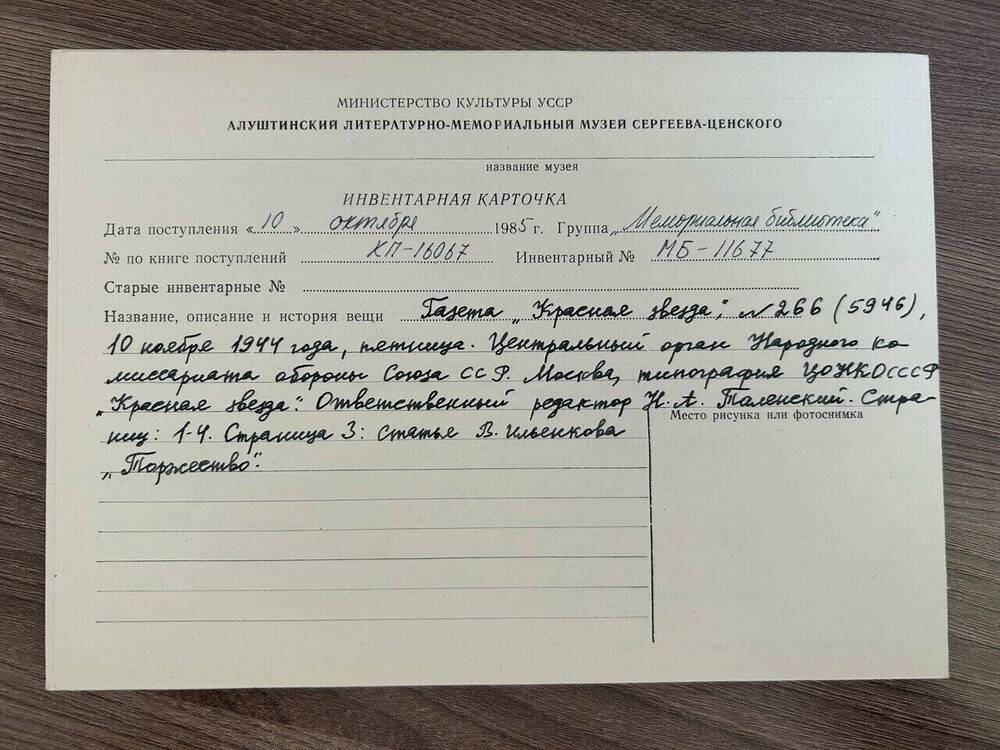 МИНИСТЕРСТВО КУЛЬТУРЫ УССР
АЛУШТИНСКИЙ ЛИТЕРАТУРНО-МЕМОРИАЛЬНЫЙ МУЗЕЙ СЕРГЕЕВА-ЦЕНСКОГО
название музея
ИНВЕНТАРНАЯ КАРТОЧКА
Дата поступления «10» октября 1985 г. Группа „Мемориальная библиотека"
№ по книге поступлений КП-16067 Инвентарный № МБ-11677
Старые инвентарные №
Название, описание и история вещи Газета „Красная звезда", №266 (5946),
10 ноября 1944 года, пятница. Центральный орган Народного ко
миссариата обороны Союза ССР. Москва, типография ЦОНКОСССР
„Красная звезда". Ответственный редактор Н. А. Таленский. Стра-
ниц: 1-4. Страница 3: статья В. Ильенкова
„Торжество".
Место рисунка или фотоснимка